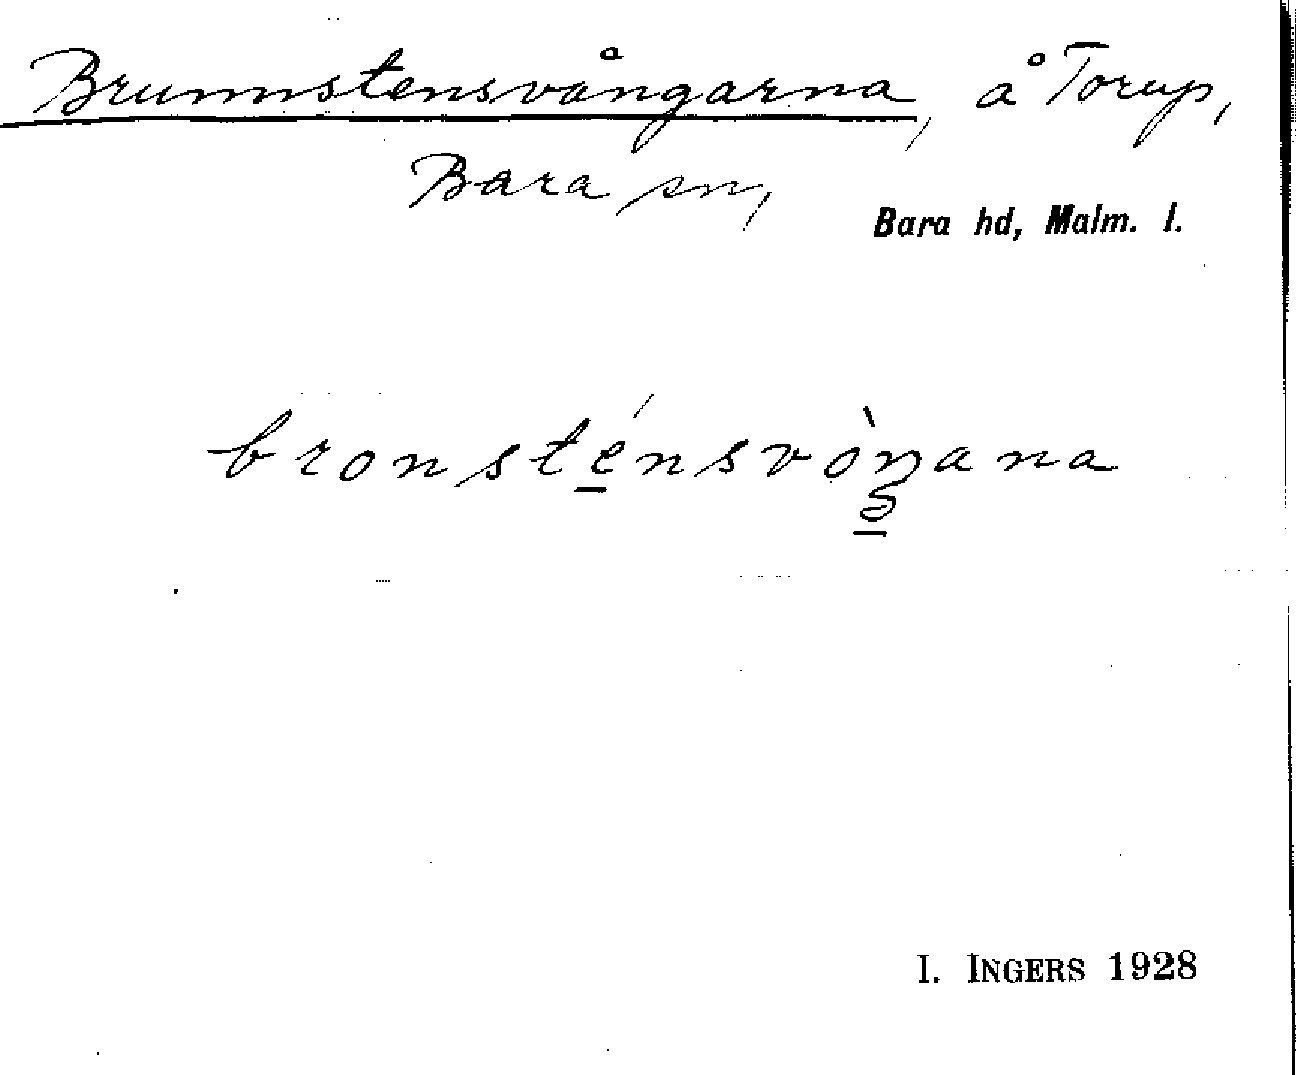 Brunnstensvångarna, å Torup,
Bara sn,
Bara hd, Malm. l.
bronsténsvòŋana
I. INGERS 1928